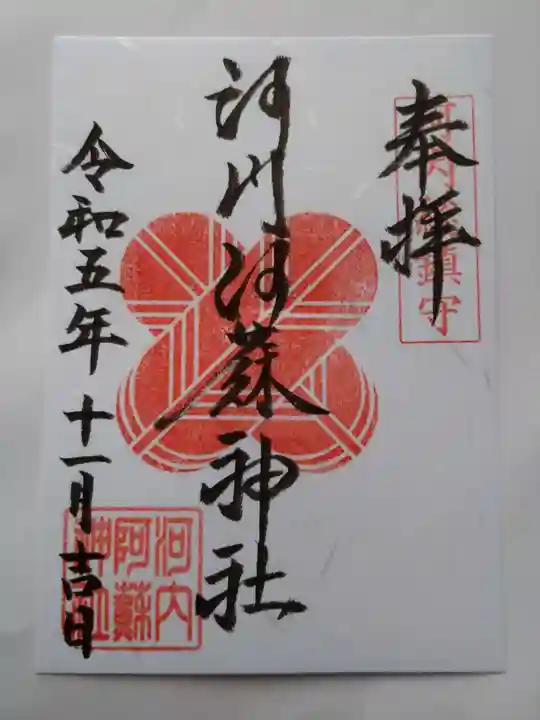 奉拝
河内総鎮守
河内阿蘇神社
令和五年 十一月吉日
河内
阿蘇
神社